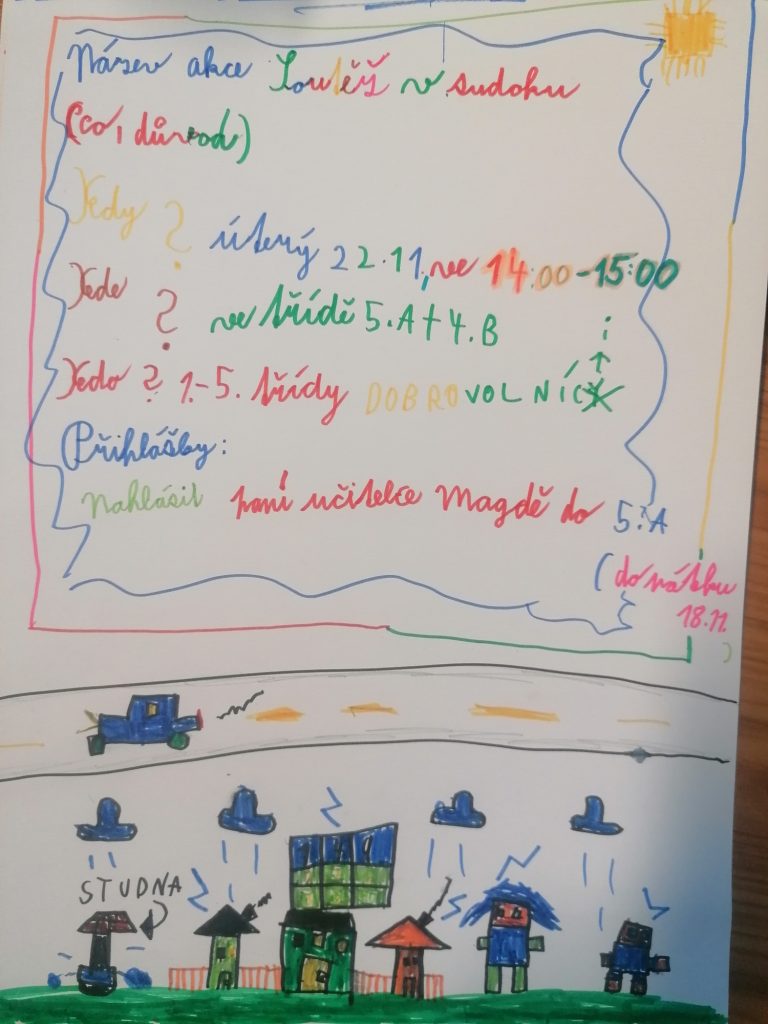 Název akce Soutěž v sudoku
(co, důvod)
Kdy? úterý 22.11, ve 14:00-15:00
Kde? ve třídě 5.A+4.B
Kdo? 1.-5. třídy DOBROVOLNÍCI
Přihlášky:
Nahlásit paní učitelce Magdě do 5.A
(do pátku
18.11.)
STUDNA